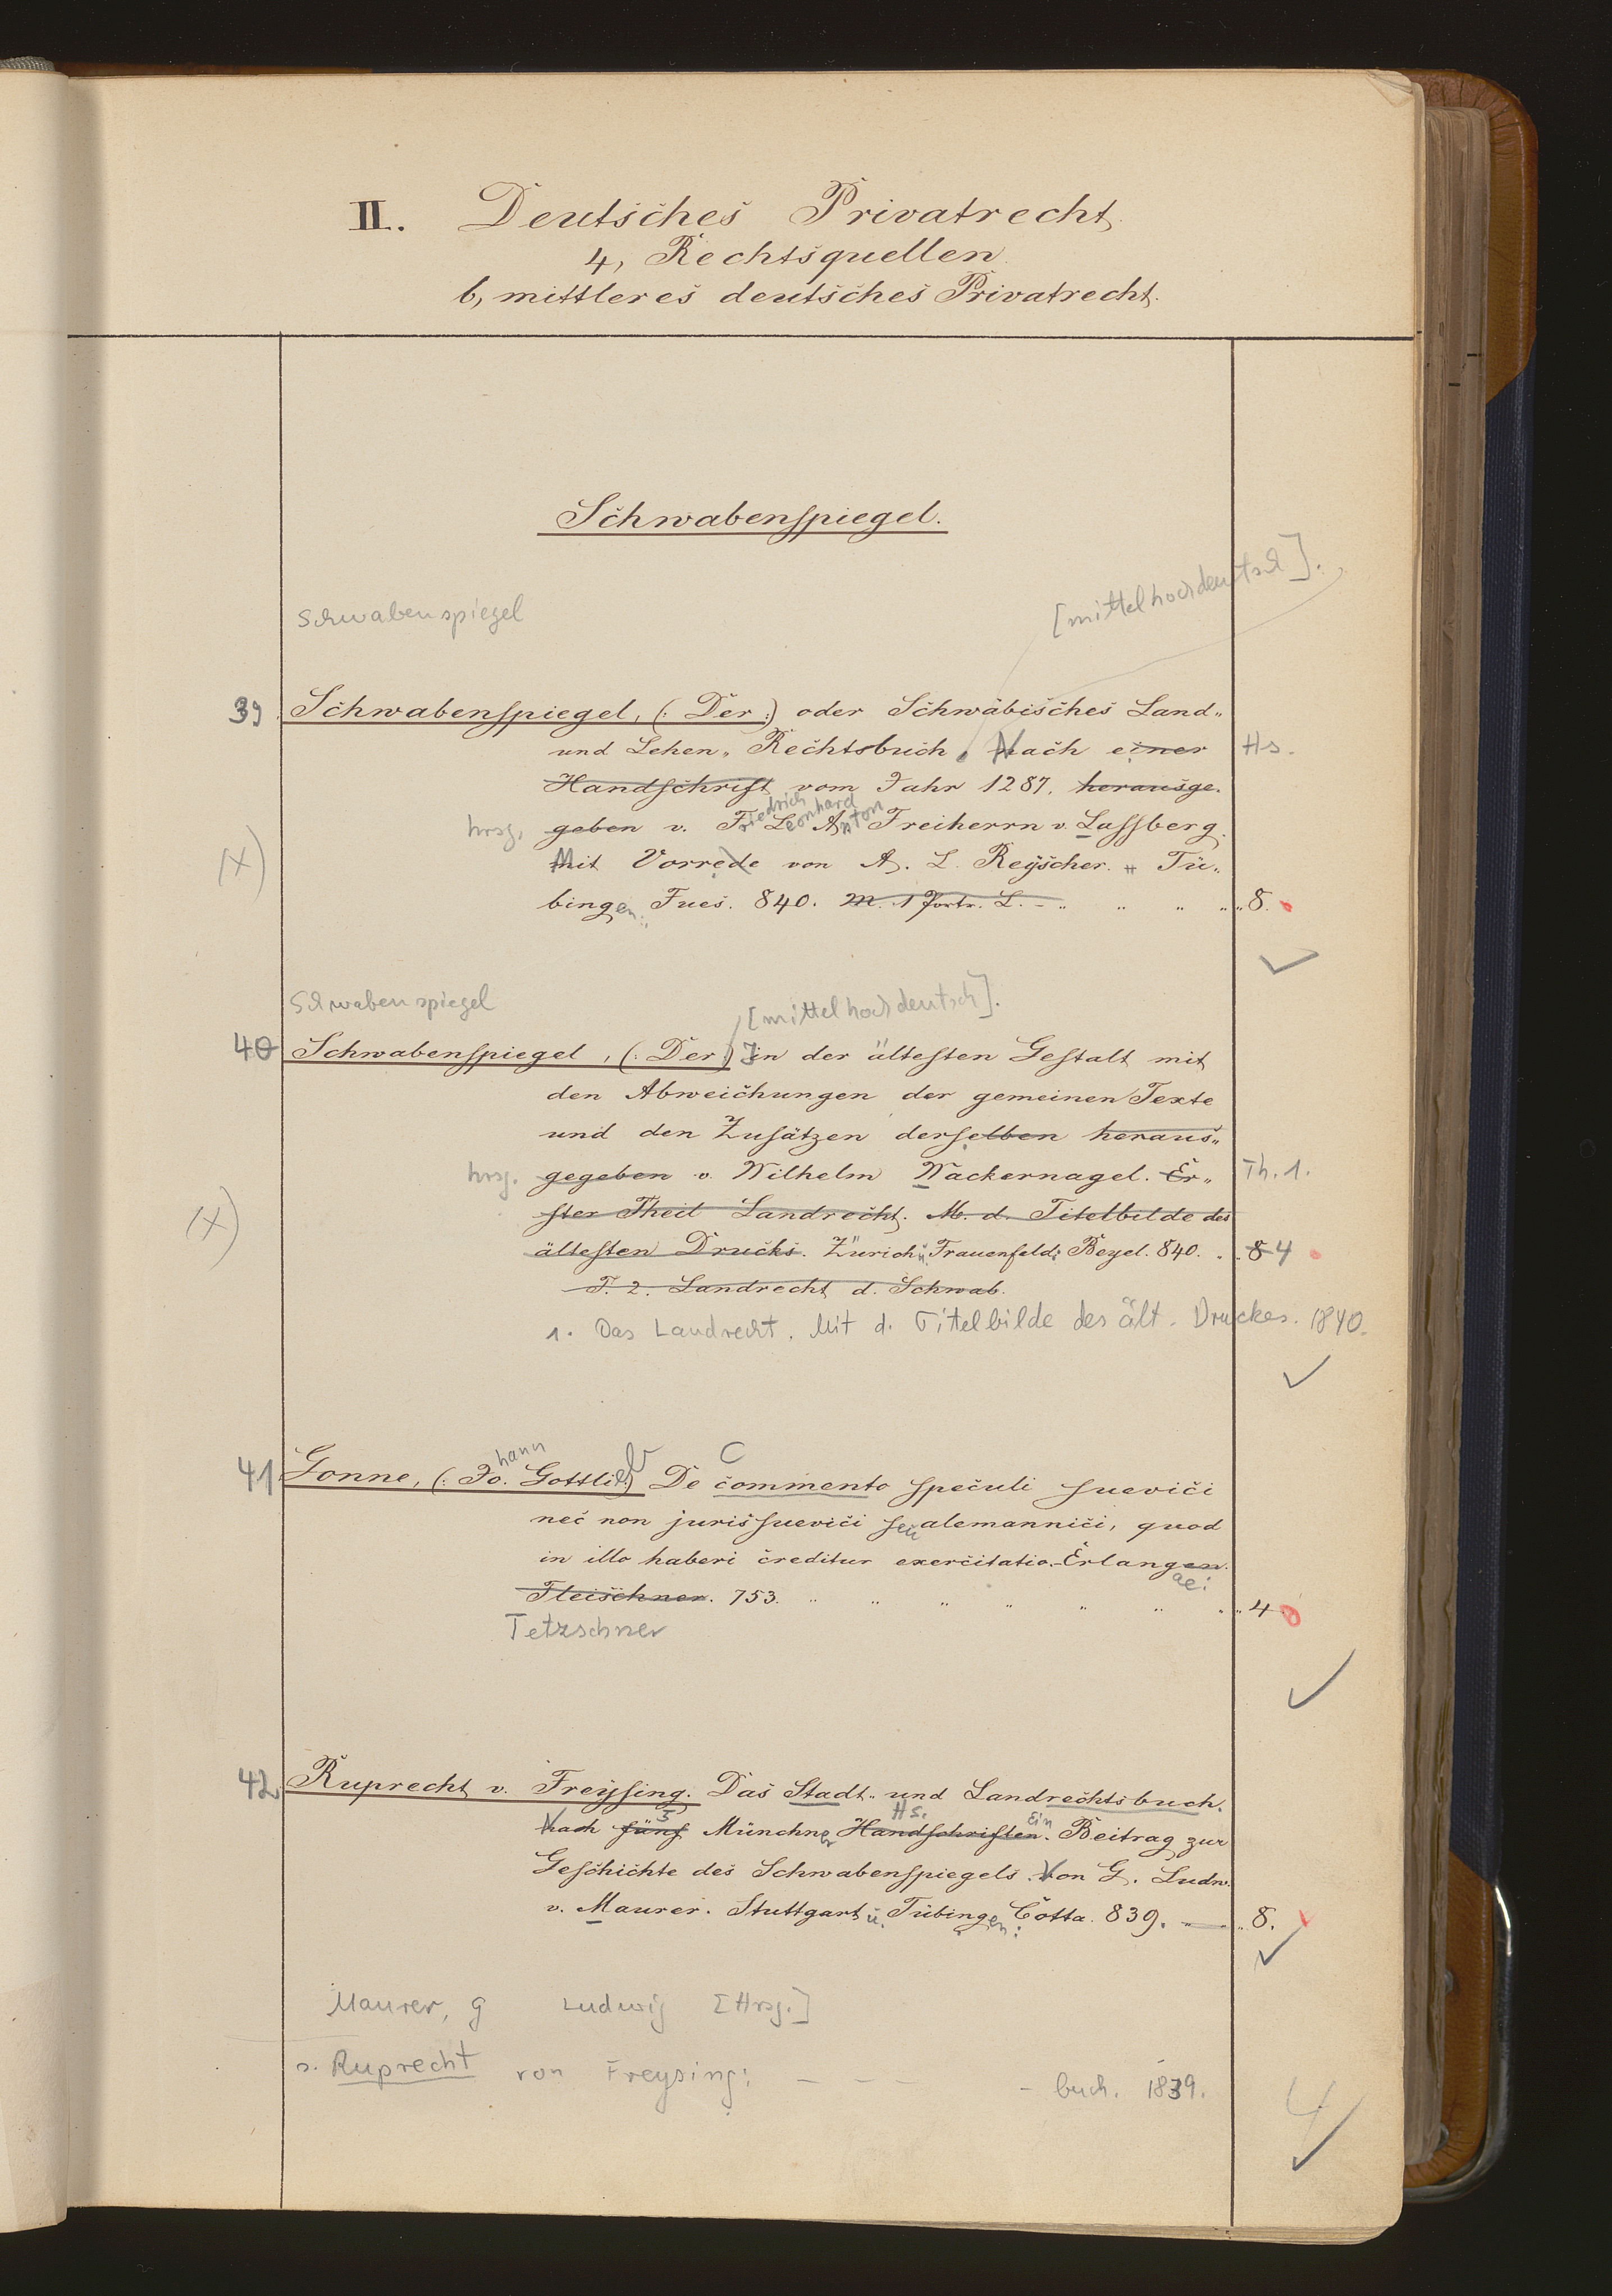 II. Deutsches Privatrecht
4, Rechtsquellen
b, mittleres deutsches Privatrecht.
Schwabenspiegel.
[mittelhochdeutsch].
Schwabenspiegel
39 Schwabenspiegel, (: Der :) oder Schwäbisches Land-
und Lehen-Rechtsbuch. Nach einer Hs.
Handschrift vom Jahr 1287. herausge-
hrsg. geben v. Friedrich Leonhard Anton Freiherrn v. Lassberg.
(X) Mit Vorrede von A. L. Reyscher. Tü-
bingen: Fues. 840. M. 1 Portr. L. - " " " " 8.
Schwabenspiegel [mittelhochdeutsch].
40 Schwabenspiegel, (: Der :) In der ältesten Gestalt mit
den Abweichungen der gemeinen Texte
und den Zusätzen derselben heraus-
hrsg. gegeben v. Wilhelm Wackernagel. Er- Th. 1.
(X) ster Theil Landrecht. M. d. Titelbilde des
ältesten Drucks. Zürich u. Frauenfeld: Beyel. 840. " " 8 4
T. 2. Landrecht d. Schwab.
1. Das Landrecht. Mit d. Titelbilde des ält. Druckes. 1840.
41 Gonne, (: Johann Gottlieb :) De Commento speculi suevici
nec non juris suevici seu alemannici, quod
in illo haberi creditur exercitatio. Erlangen. ae:
Fleischner. 753. " " " " " " " 4
Tetzschner
42 Ruprecht v. Freysing. Das Stadt- und Landrechtsbuch.
Nach fünf 5 Münchner Handschriften Hs. Ein Beitrag zur
Geschichte des Schwabenspiegels. Von G. Ludw.
v. Maurer. Stuttgart u. Tübingen: Cotta. 839. " 8.
Maurer, G Ludwig [Hrsg.]
s. Ruprecht von Freysing: - - - - buch. 1839.
4